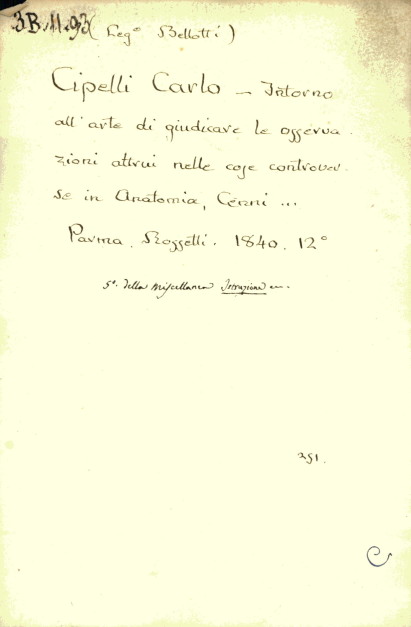 3B.11.93 (Leg° Bellotti)
Cipelli Carlo — Intorno
all'arte di giudicare le osserva-
zioni altrui nelle cose controver-
se in Anatomia, Cenni ...
Parma. Rossetti. 1840. 12°
5°. della Miscellanea Istruzione
291.
C